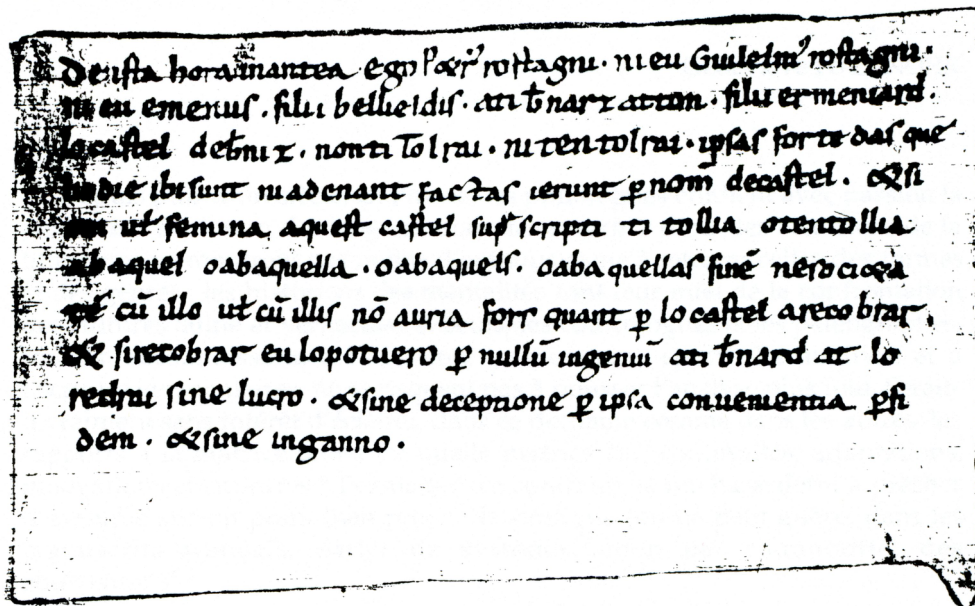 De ista hora inantea ego Petrus rostagni · ni eu Guilelm' rostagni ·
ni eu emenus . filii bellieldis . ati b̄nar attin . filiu ermeniard .
lo castel deb̄niz . non ti tolrai . ni ten tolrai . ipsas fortedas que
hodie ibi sunt ni adenant factas ierunt p nom̄ decastel . & si
ut̄ femina aquest castel sup̄ scripti ti tollia o ten tollia
ab aquel o ab aquella . o ab aquels . o ab aquellas finē ne sociera
ut̄ cū illo ut̄ cū illis nō auria forr quant p lo castel a recobrar .
& si recobrar eu lo potuero p nullū ingeniū ati b̄nard at lo
redrai sine lucro . & sine deceptione p ipsa convenientia p fi
dem . & sine inganno .